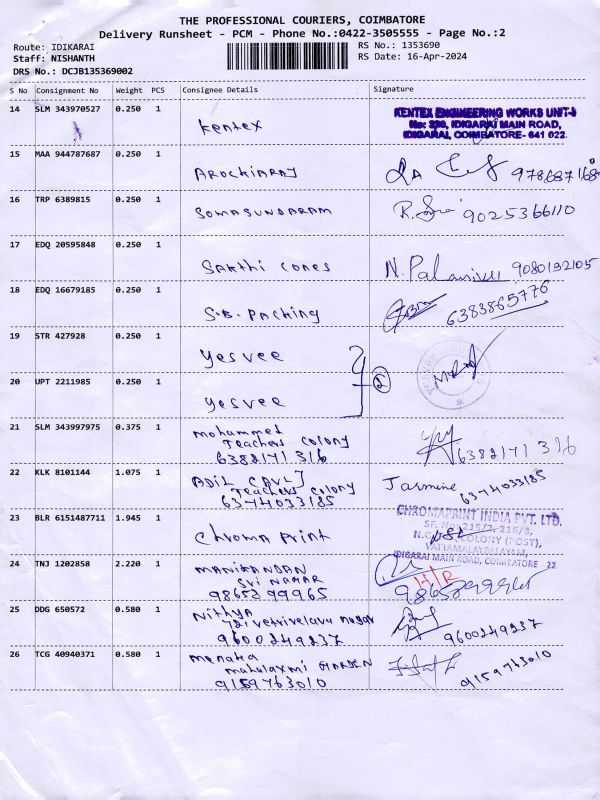 THE PROFESSIONAL COURIERS, COIMBATORE
Delivery Runsheet - PCM - Phone No.:0422-3505555 - Page No.:2
Route: IDIKARAI
Staff: NISHANTH
DRS No.: DCJB135369002
RS No.: 1353690
RS Date: 16-Apr-2024
S No Consignment No Weight PCS Consignee Details Signature
14 SLM 343970527 0.250 1 Kentex
KENTEX ENGINEERING WORKS UNIT-
IDIGARAI MAIN ROAD,
IDIGARAI, COIMBATORE- 641 022.
15 MAA 944787687 0.250 1 AROCKIARAJ
16 TRP 6389815 0.250 1 SOMASUNDARAM 9025366110
17 EDQ 20595848 0.250 1 SAKTHI CONES N. Palanivel 9080192105
18 EDQ 16679185 0.250 1 S.B. PACKING 6383865776
19 STR 427928 0.250 1 Yesvee
20 UPT 2211985 0.250 1 yesvee
21 SLM 343997975 0.375 1 mohammed
Teachers colony
6382171 316 6382171 316
22 KLK 8101144 1.075 1 ADIL
Teachers Colony Jasmine
6374033185 6374033185
23 BLR 6151487711 1.945 1 Chroma Print
CHROMAPRINT INDIA PVT. LTD.
SF. No. 215/2, 216/3,
COLONY (POST),
VATTAMALAYPALAYAM,
IDIGARAI MAIN ROAD, COIMBATORE 22
24 TNJ 1202858 2.220 1 MANIKANDAN
Sri NAGAR H/R
9865299965
25 DDG 650572 0.580 1 Nithya
vetrivelava nagar
9600249237 9600249237
26 TCG 40940371 0.580 1 menaka
mahalaxmi GARDEN
9159763010 9159763010